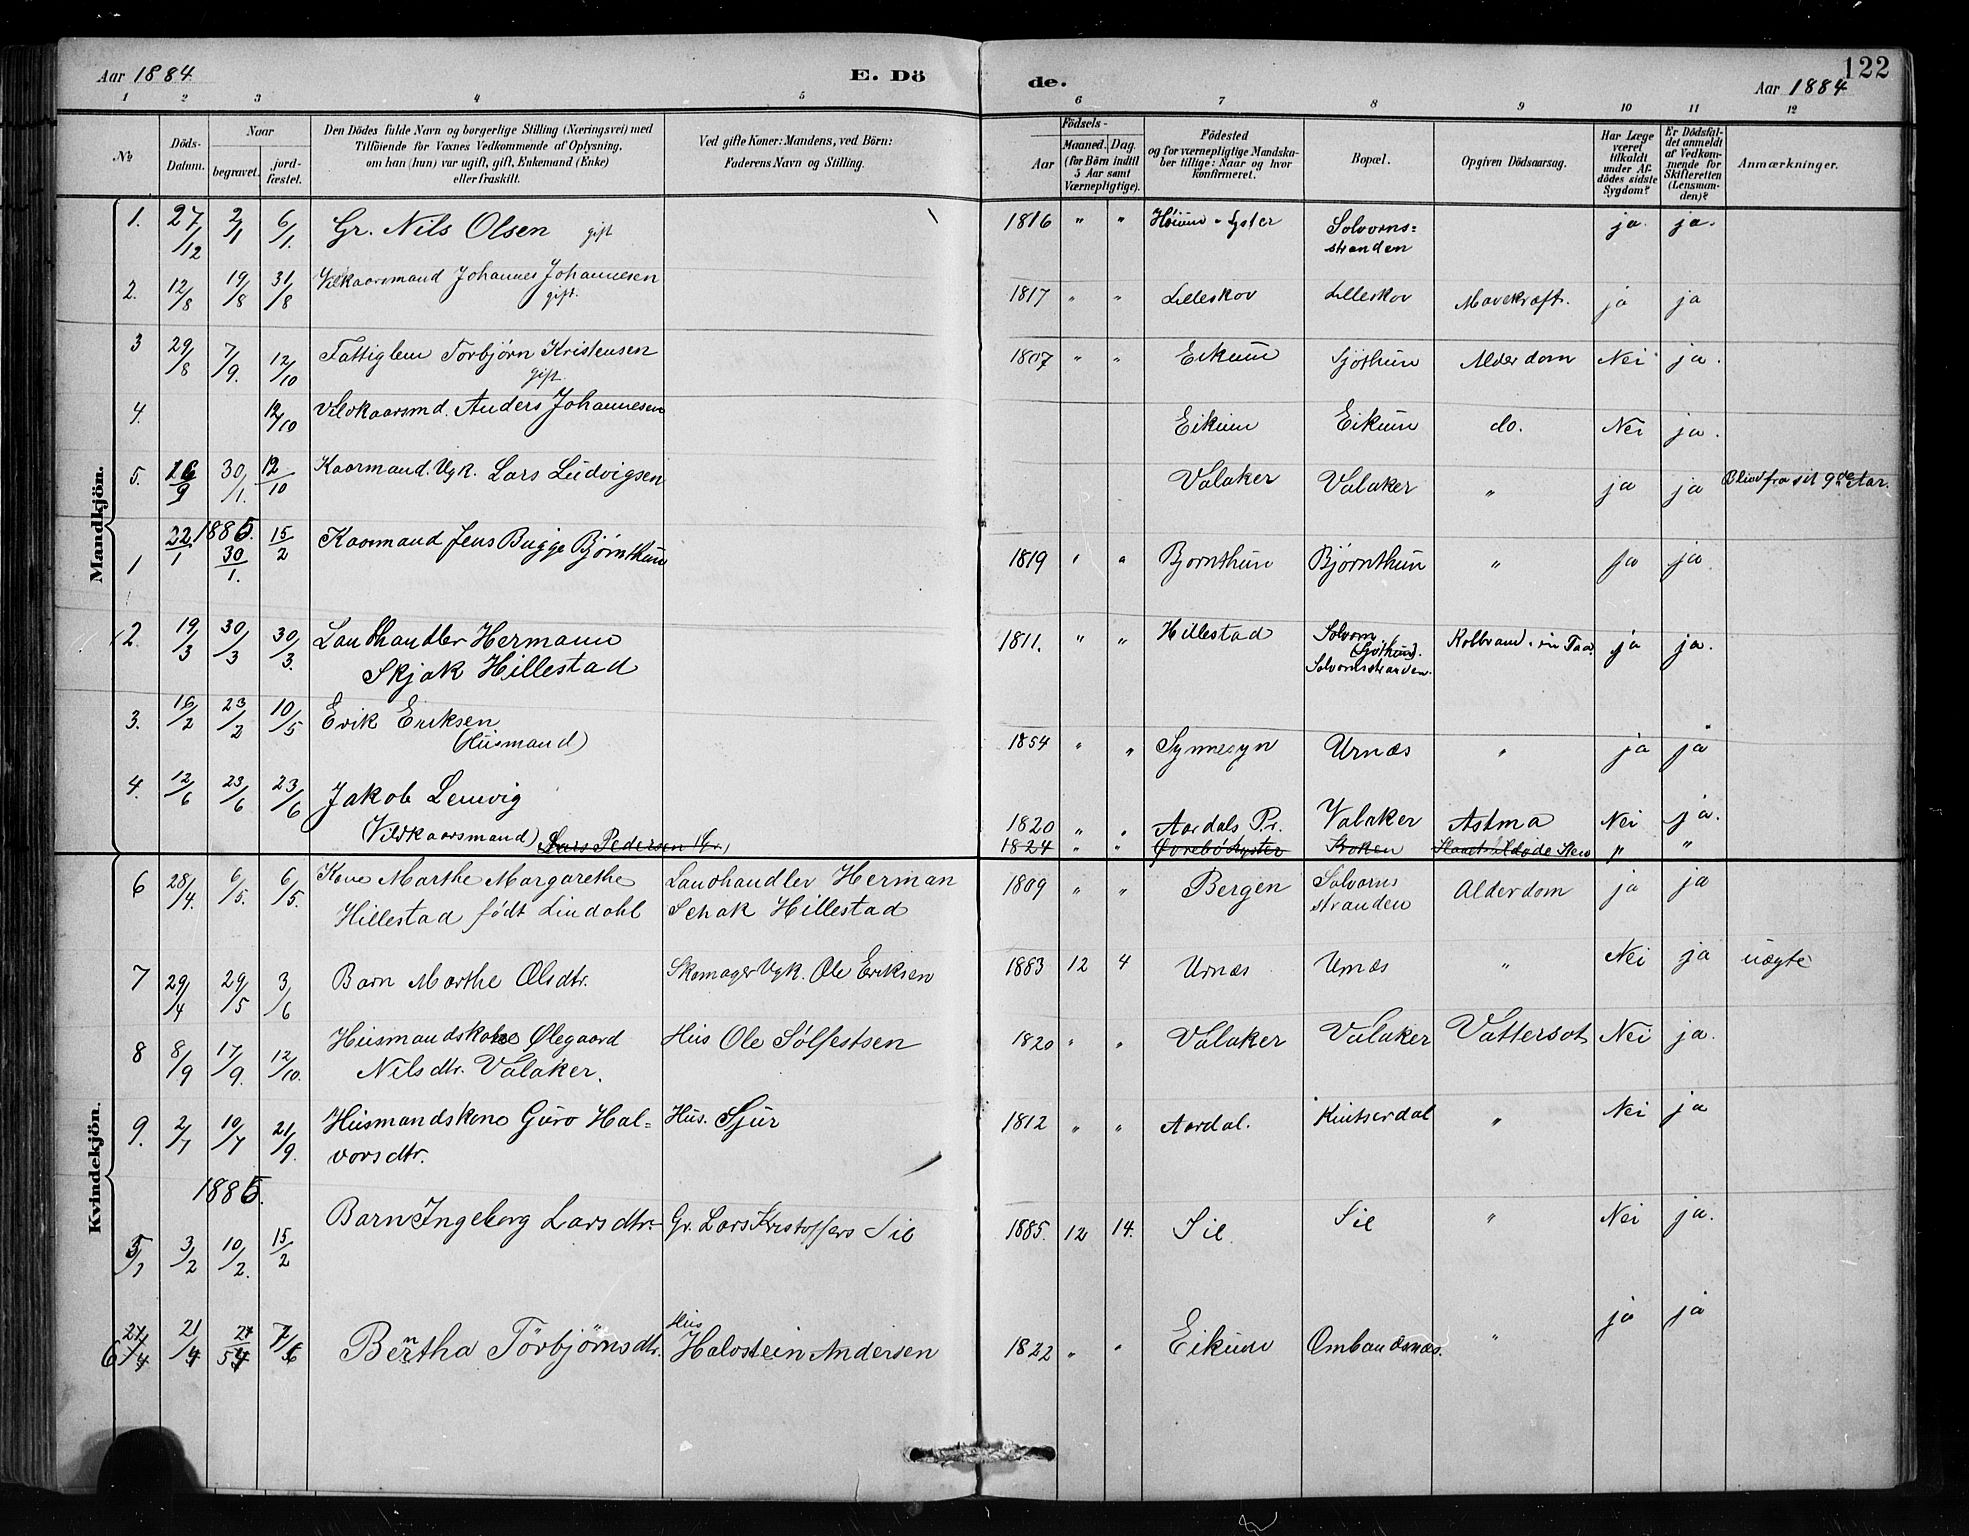 Aar 1884
E. Dö
de.
Aar 1884
122
1 2 3 4 5 6 7 8 9 10 11 12
No
Döds-Datum.
Naar
begravet.
jordfæstet.
Den Dödes fulde Navn og borgerlige Stilling (Næringsvei) med
Tilföiende for Voxnes Vedkommende af Oplysning,
om han (hun) var ugift, gift, Enkemand (Enke)
eller fraskilt.
Ved gifte Koner: Mandens, ved Börn:
Faderens Navn og Stilling.
Födsels-
Aar
Maaned. Dag.
(for Börn indtil
5 Aar samt
Værnepligtige).
Födested
og for værnepligtige Mandskaber tillige: Naar og hvor
konfirmeret.
Bopæl.
Opgiven Dödsaarsag.
Har Læge
været
tilkaldt
under Afdödes sidste
Sygdom?
Er Dödsfaldet anmeldt
af Vedkommende for
Skifteretten
(Lensmanden)?
Anmærkninger.
Mandkjön.
1. 27/12 2/1 6/1. Gr. Nils Olsen gift 1816 " " Lyster Solvorns=
stranden ja. ja.
2. 12/8 19/8 31/8 Vilkaarsmand Johannes Johannesen
gift. 1817 " " Lilleskov Lilleskov Mavekræft. ja ja
3 29/8 7/9. 12/10 Fattiglem Torbjørn Kristensen
gift 1807 " " Eikum Sjøthun Alderdom Nei ja.
4. 12/10 Vilvkaarsmd. Anders Johannesen Eikum Eikum do. Nei ja.
5. 16/9 30/1. 12/10 Kaarmand. Ugk. Lars Ludvigsen Valaker Valaker " ja ja Blind fra sit 9de Aar.
1885.
1 22/1 30/1. 15/2 Kaarmand Jens Bugge Bjørnthun 1819 " " Bjørnthun Bjørnthun " ja ja.
2. 19/3 30/3 30/3. Landhandler Hermann
Skjak Hillestad 1811. " " Hillestad Solvorn
(Sjøthun).
Solvornsstranden. Kolbrand i en Taa. ja ja.
3. 16/2 23/2 10/5 Erik Eriksen
(Husmand) 1854 " " Synnesyn Urnæs " ja ja
4. 12/6 23/6 23/6 Jakob Lemvig
(Vilkaarsmand) 1820 " " Aardals Pr. Valaker Astma Nei ja.
Lars Pedersen Gr. 1824 " " Lyster Kroken " "
Kvindekjön.
6 28/4. 6/5. 6/5. Kone Marthe Margarethe
Hillestad født Lindahl Landhandler Herman
Schak Hillestad 1809 " " Bergen Solvorns
stranden Alderdom ja ja
7 29/4 29/5 3/6 Barn Marthe Olsdtr. Skomager Ugk. Ole Eriksen 1883 12 4 Urnæs Urnæs " Nei ja uægte
8 8/9 17/9. 12/10. Husmandskone Ølegaard
Nilsdtr. Valaker. Hus Ole Sølfestsen 1820 " " Valaker Valaker Vattersot Nei ja.
9. 2/7 10/7 21/9. Husmandskone Guro Hal=
vorsdtr. Hus. Sjur 1812 " " Aardal. Kinserdal " Nei ja
1885.
5/1 3/2 10/2. 15/2 Barn Ingeborg Larsdtr. Gr. Lars Kristoffers Sie 1885. 12 14. Sie Sie " Nei ja.
6 21/4 Bertha Torbjørnsdtr. Hus
Halvstein Andersen 1822 " " Eikum Ombandsnæs. " ja ja